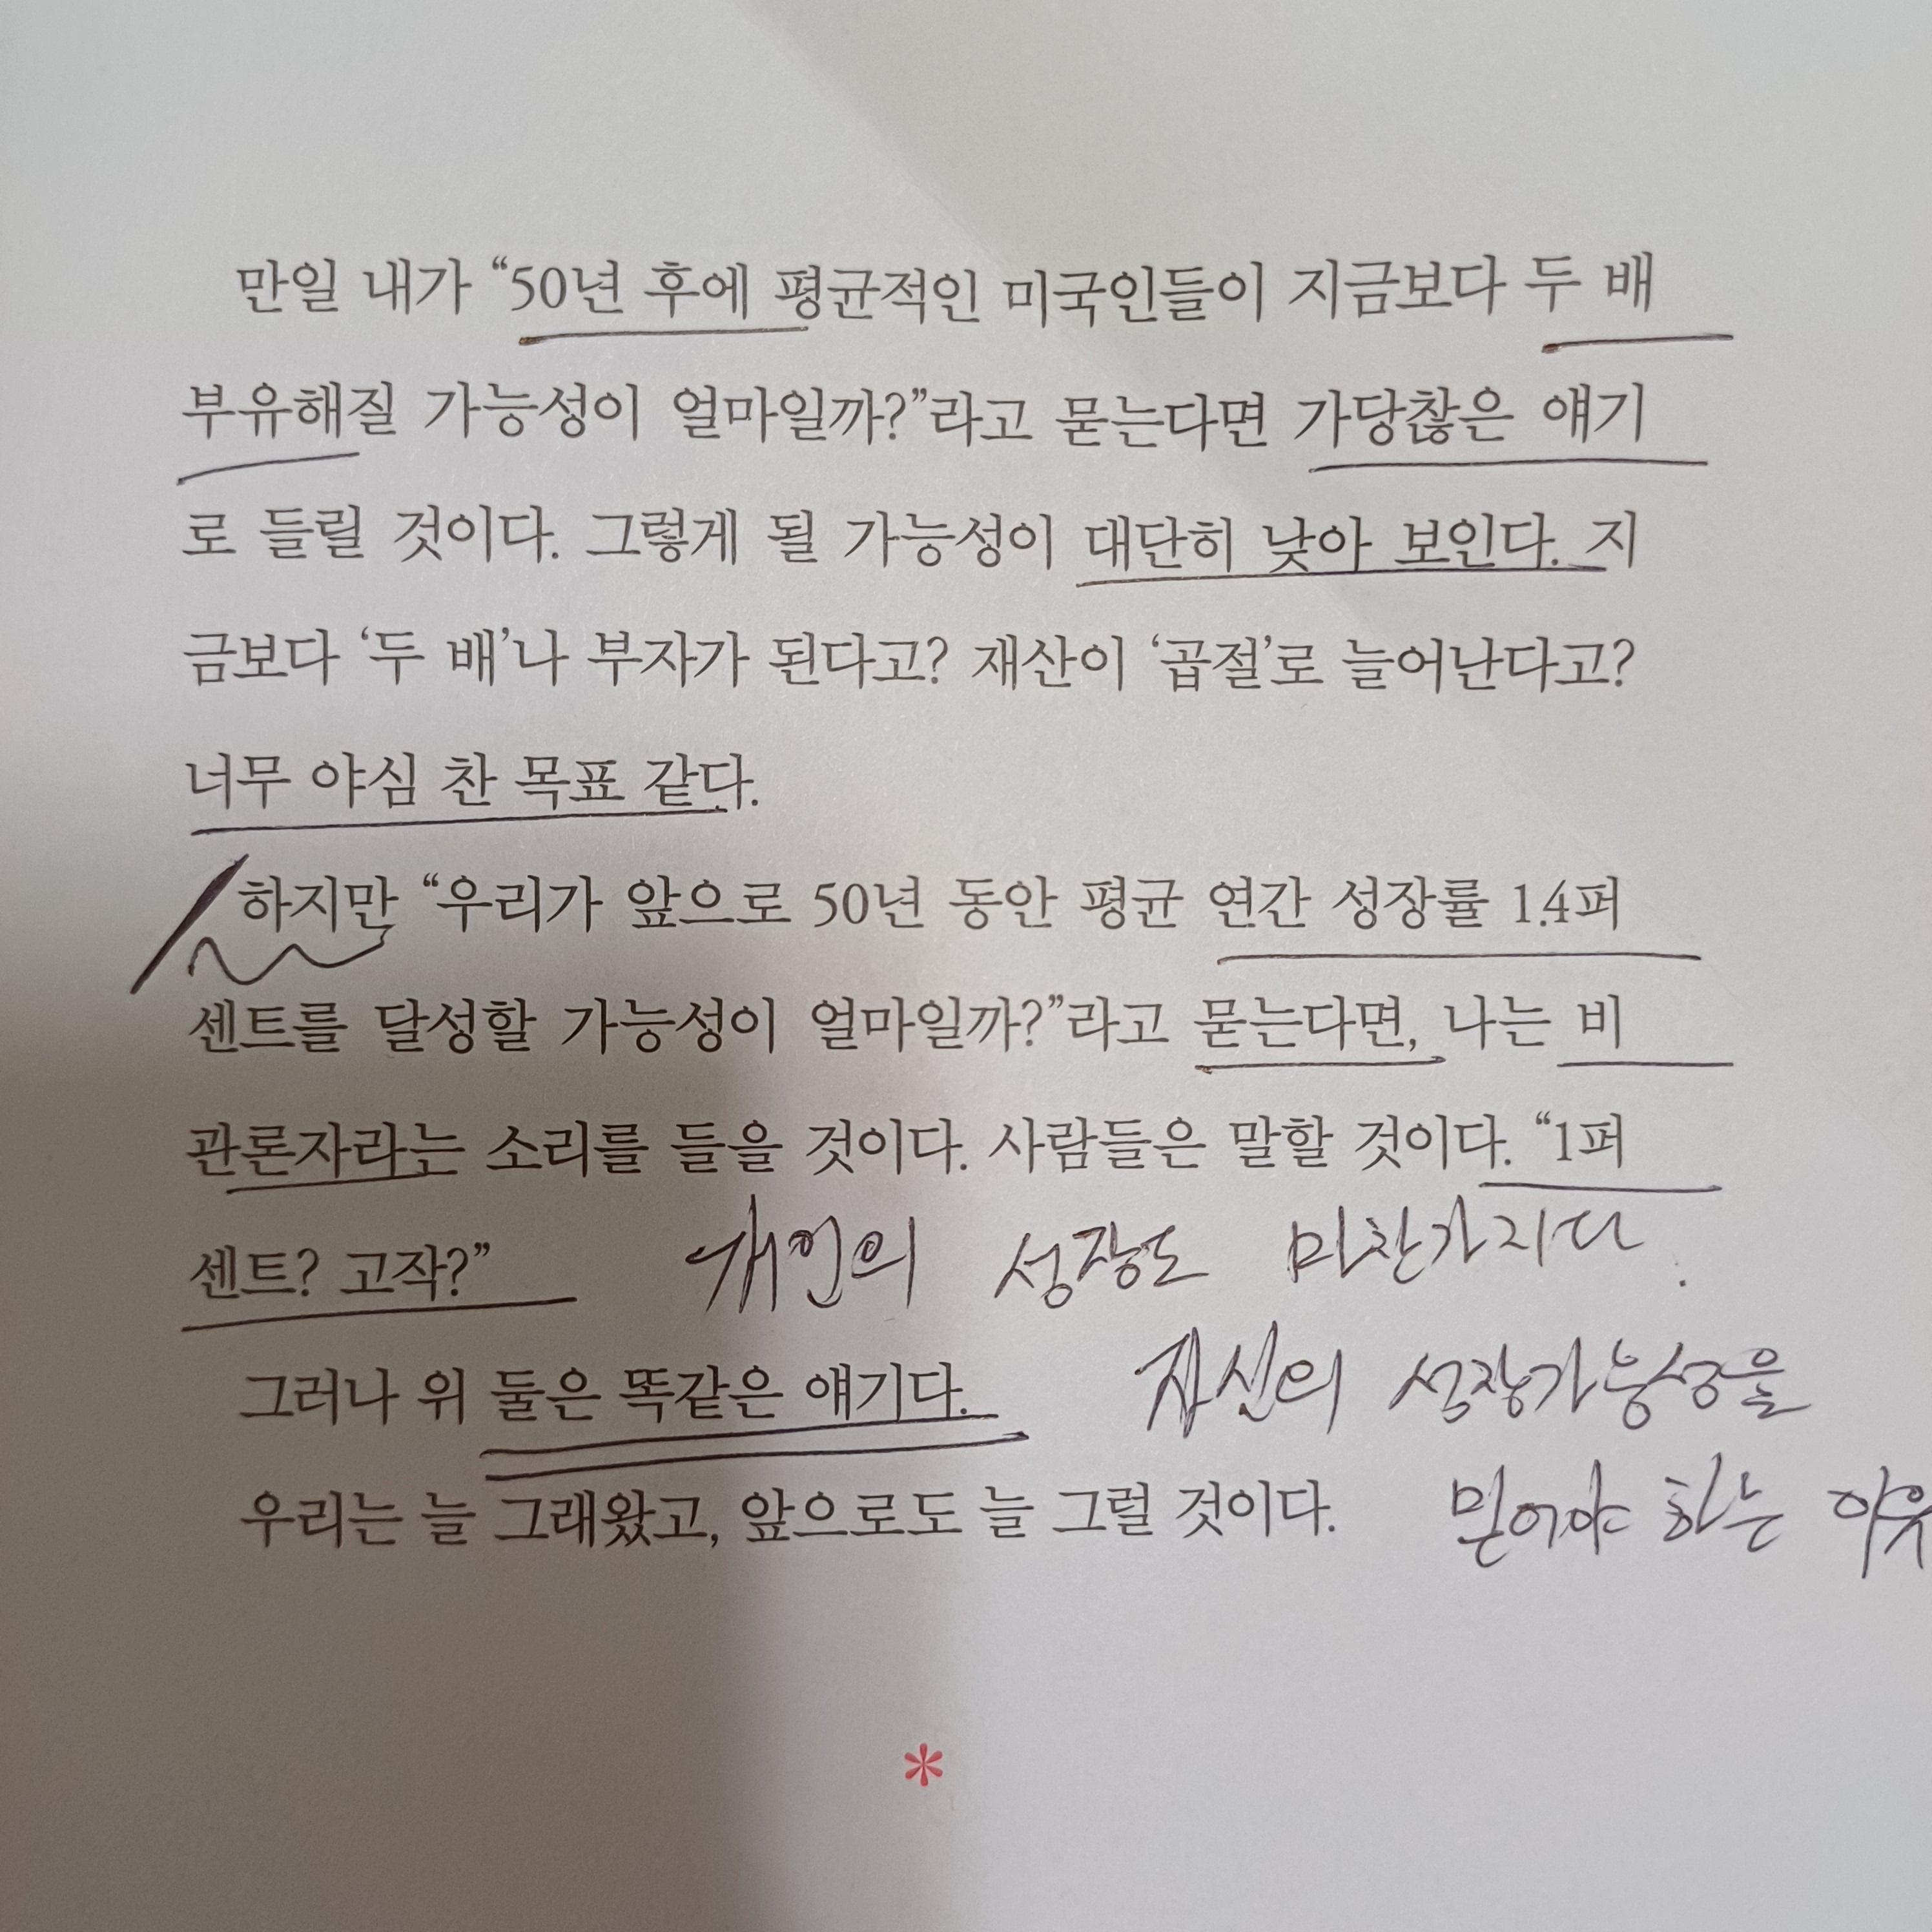 만일 내가 “50년 후에 평균적인 미국인들이 지금보다 두 배
부유해질 가능성이 얼마일까?”라고 묻는다면 가당찮은 얘기
로 들릴 것이다. 그렇게 될 가능성이 대단히 낮아 보인다. 지
금보다 ‘두 배’나 부자가 된다고? 재산이 ‘곱절’로 늘어난다고?
너무 야심 찬 목표 같다.
하지만 “우리가 앞으로 50년 동안 평균 연간 성장률 1.4퍼
센트를 달성할 가능성이 얼마일까?”라고 묻는다면, 나는 비
관론자라는 소리를 들을 것이다. 사람들은 말할 것이다. “1퍼
센트? 고작?”
개인의 성장도 마찬가지다.
그러나 위 둘은 똑같은 얘기다.
자신의 성장가능성을
우리는 늘 그래왔고, 앞으로도 늘 그럴 것이다.
믿어야 하는 이유
*